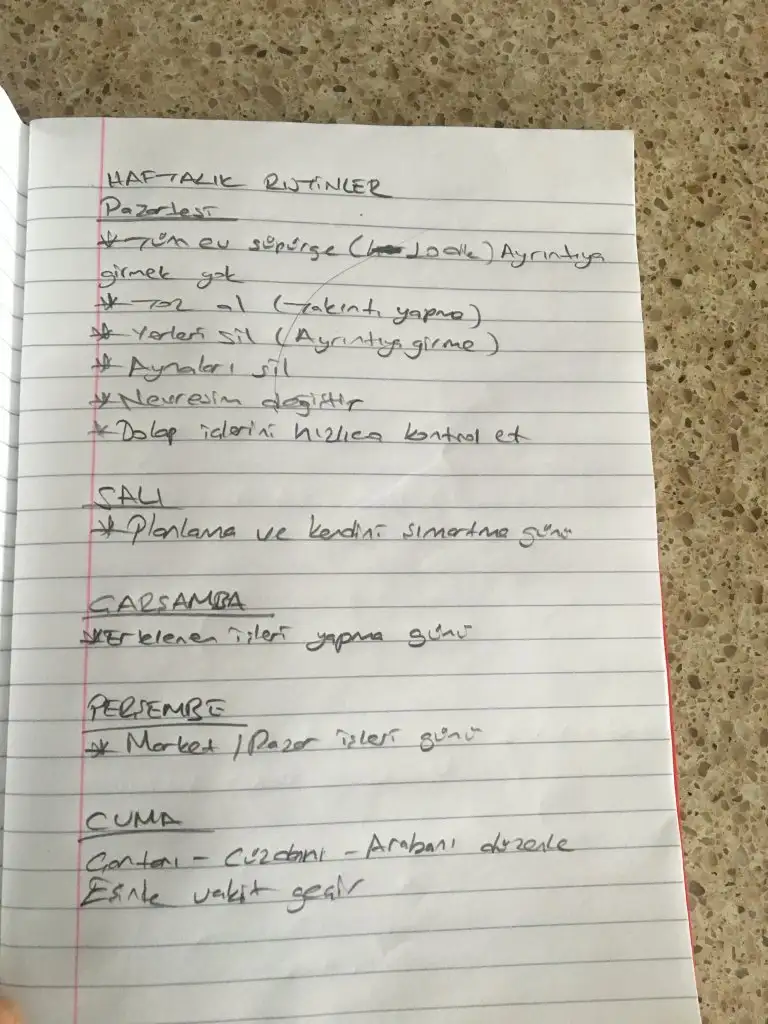 HAFTALIK RUTİNLER
Pazartesi
* Tüm ev süpürge (10 dk) Ayrıntıya
girmek yok
* Toz al (Takıntı yapma)
* Yerleri sil (Ayrıntıya girme)
* Aynaları sil
* Nevresim değiştir
* Dolap içlerini hızlıca kontrol et
SALI
* Planlama ve kendini şımartma günü
ÇARŞAMBA
* Ertelenen işleri yapma günü
PERŞEMBE
* Market / Pazar işleri günü
CUMA
Çantanı - Cüzdanı - Arabanı düzenle
Eşinle vakit geçir